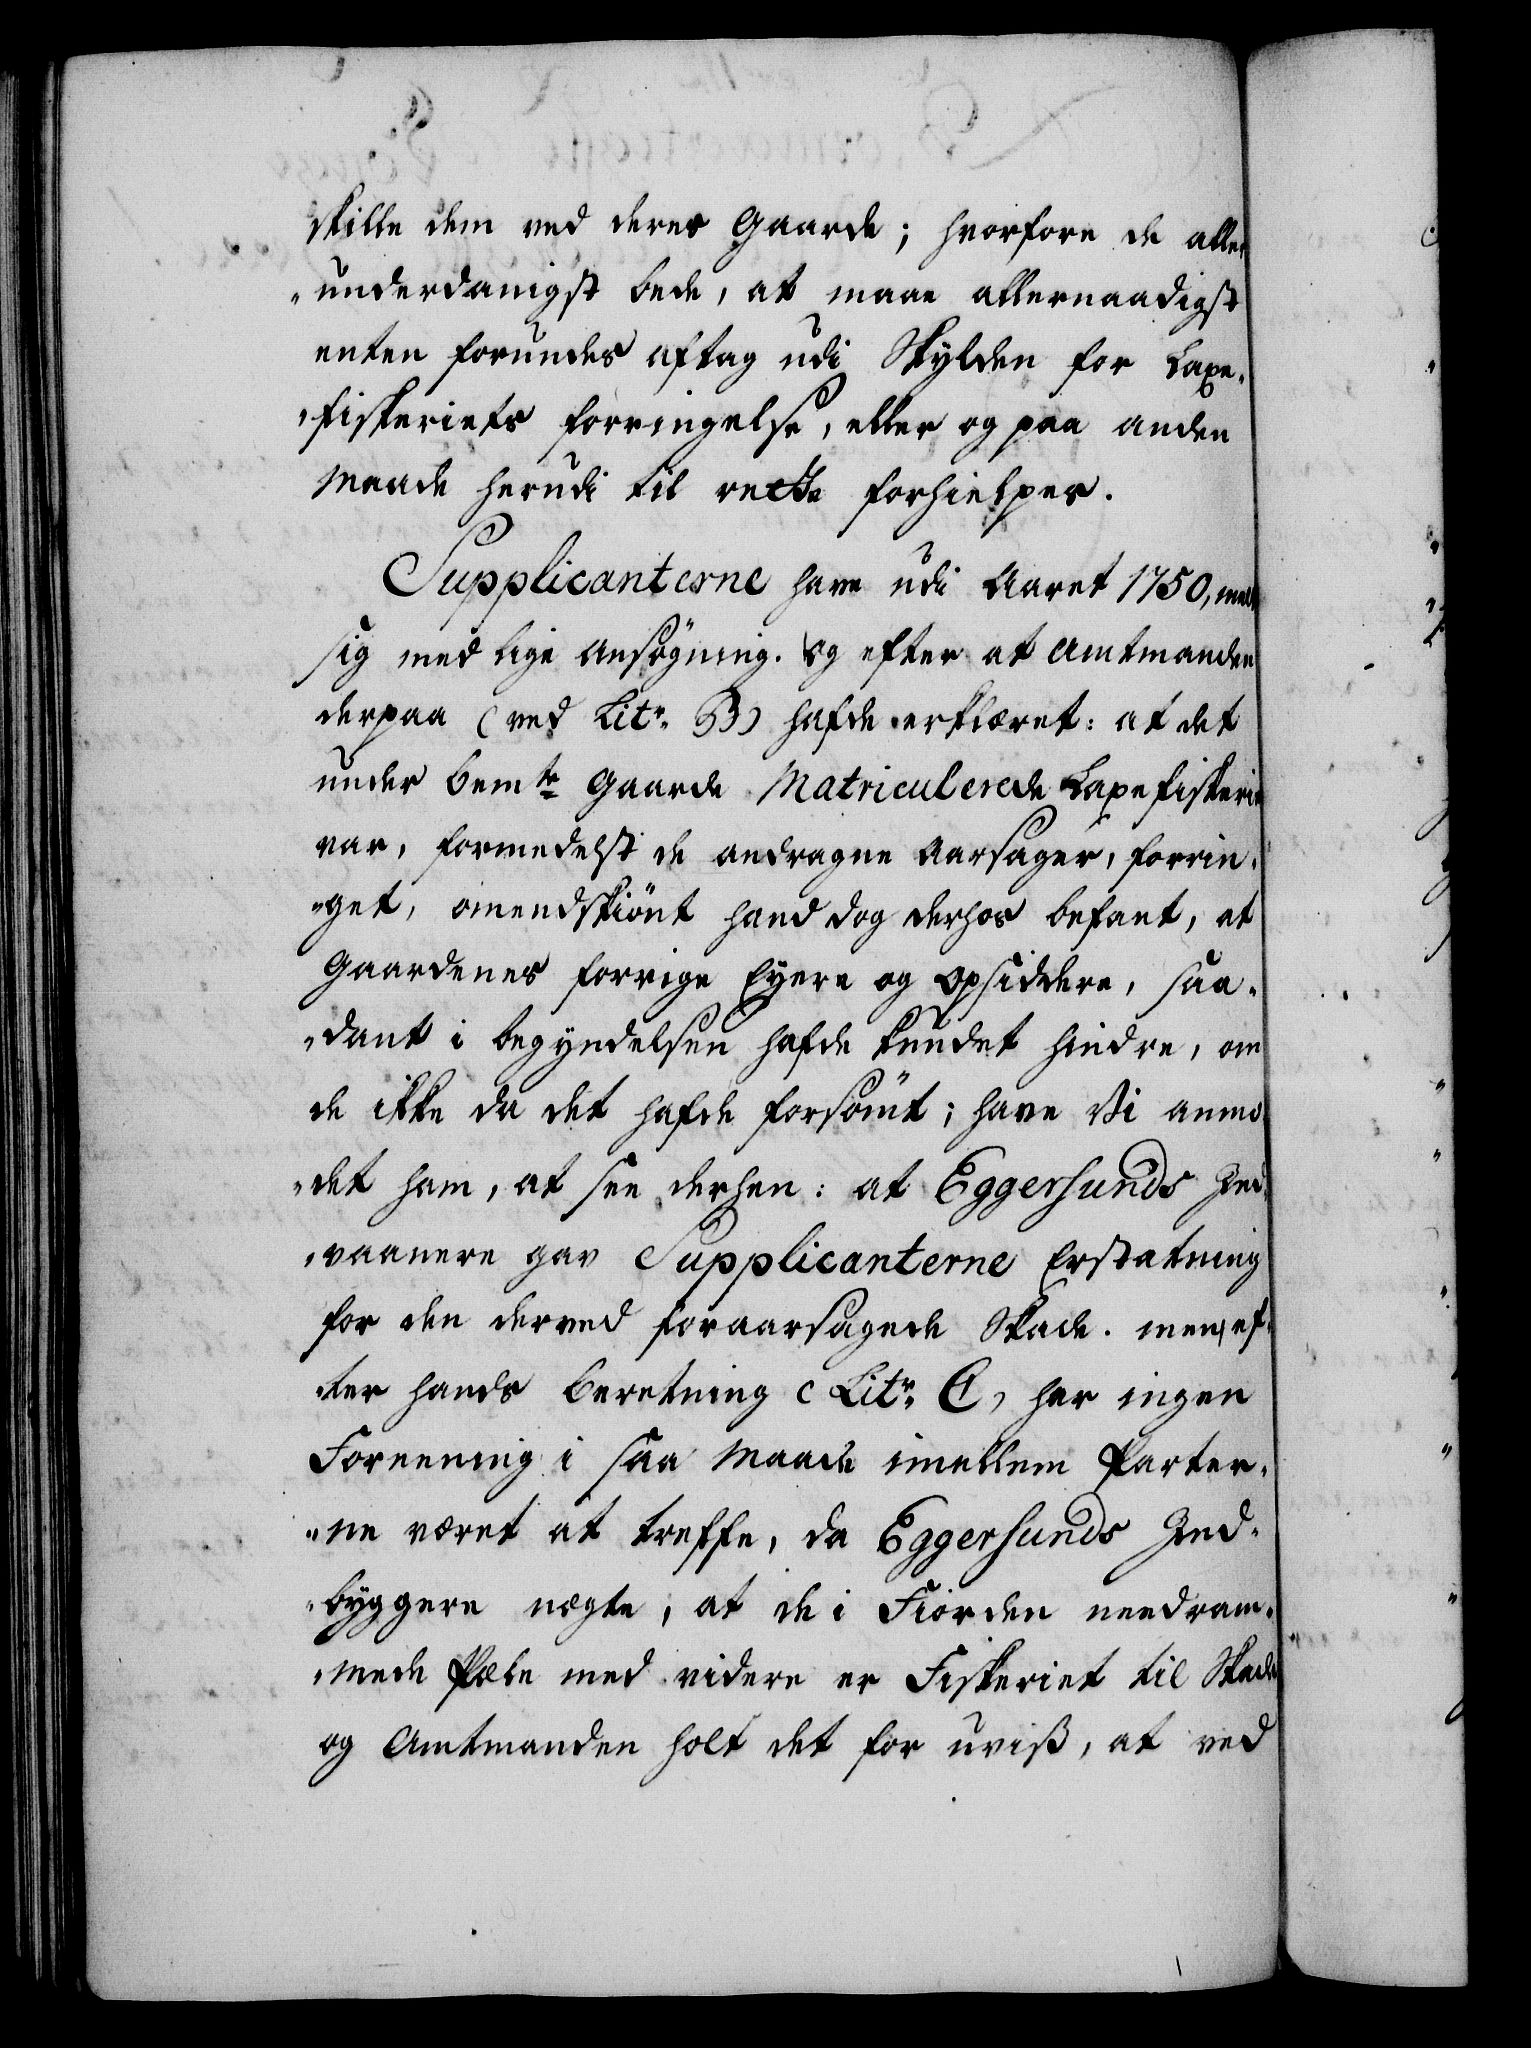 skille dem ved deres Gaarde; hvorfore de aller
„underdanigst bede, at maae allernaadigst
enten forundes aftag udi Skylden for Laxe„
„fiskeriets forringelse, eller og paa anden
Maade herudi til rette forhielpes.
Supplicanterne have udi Aaret 1750, meldt
sig med lige Ansøgning. Og efter at Amtmanden
derpaa (ved Litr. B) hafde erklæret: at det
under bemte Gaarde Matriculerede Laxefiskerie
var, formedelst de andragne Aarsager, forrin„
„get, omendskiönt hand dog derhos befant, at
Gaardenes forrige Eyere og Opsiddere, saa„
„dant i begyndelsen hafde kundet hindre, om
de ikke da det hafde forsömt; have Vi anmo
„det ham, at see derhen: at Eggersunds Ind„
„vaanere gav Supplicanterne Erstatning
for den derved foraarsagede Skade. men, ef„
„ter hands Beretning (Litr. C) har ingen
Foreening i saa Maade imellem Parter„
„ne været at treffe, da Eggersunds Ind„
„byggere nægte, at de i Fiorden needram„
„mede Pæle med videre er Fiskeriet til Skade
og Amtmanden holt det for uviß, at ved